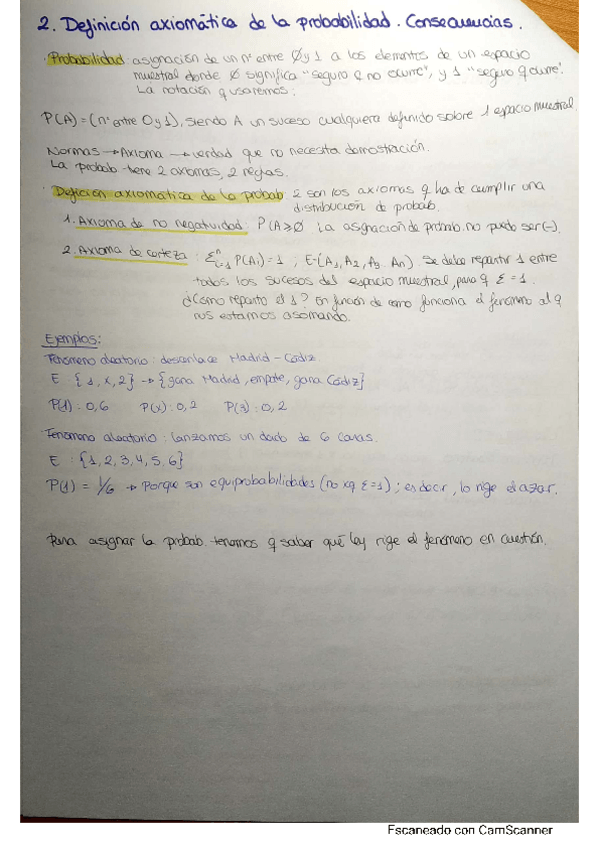 2. Definición axiomática de la probabilidad. Consecuencias.
· Probabilidad: asignación de un nº entre 0 y 1 a los elementos de un espacio
muestral donde 0 significa "seguro q no ocurre", y 1 "seguro q ocurre".
La notación q usaremos:
P(A) = (nº entre 0 y 1), siendo A un suceso cualquiera definido sobre 1 espacio muestral.
Normas → Axioma → verdad que no necesita demostración.
La probab. tiene 2 axiomas, 2 reglas.
· Defición axiomática de la probab: 2 son los axiomas q ha de cumplir una
distribución de probab.
1. Axioma de no negatividad: P(A≥0 La asignación de probab. no puede ser (-).
2. Axioma de certeza: Σⁿᵢ₌₁ P(Ai) = 1 ; E=(A1, A2, A3.. An) Se debe repartir 1 entre
todos los sucesos del espacio muestral, para q Σ = 1.
¿Cómo reparto el 1? En función de como funciona el fenómeno al q
nos estamos asomando.
Ejemplos:
Fenómeno aleatorio: desenlace Madrid - Cádiz
E: {1, x, 2} → {gana Madrid, empate, gana Cádiz}
P(1): 0,6 P(x): 0,2 P(3): 0,2
Fenómeno aleatorio: lanzamos un dado de 6 caras.
E: {1, 2, 3, 4, 5, 6}
P(1) = 1/6 → Porque son equiprobabilidades (no xq Σ=1); es decir, lo rige el azar.
Para asignar la probab. tenemos q saber qué ley rige el fenómeno en cuestión.
Escaneado con CamScanner